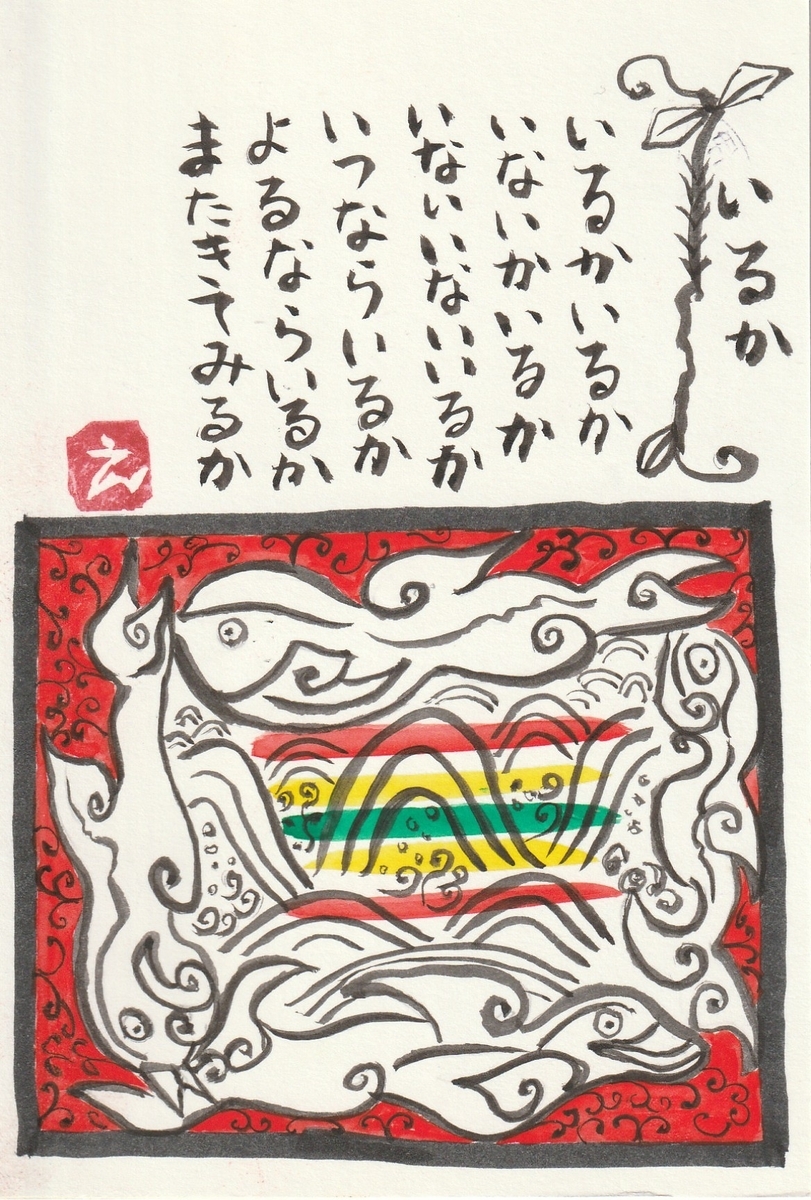 いるか
いるかいるか
いないかいるか
いないいないいるか
いつならいるか
よるならいるか
またきてみるか
え